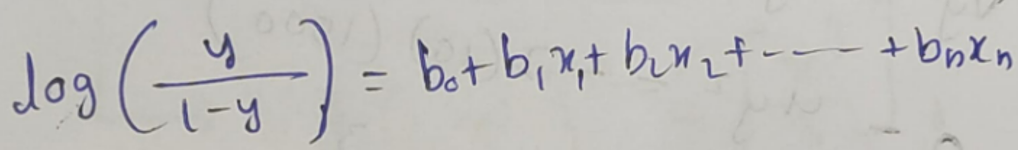 log(y/(1-y)) = b₀ + b₁x₁ + b₂x₂ + ----- + bₙxₙ